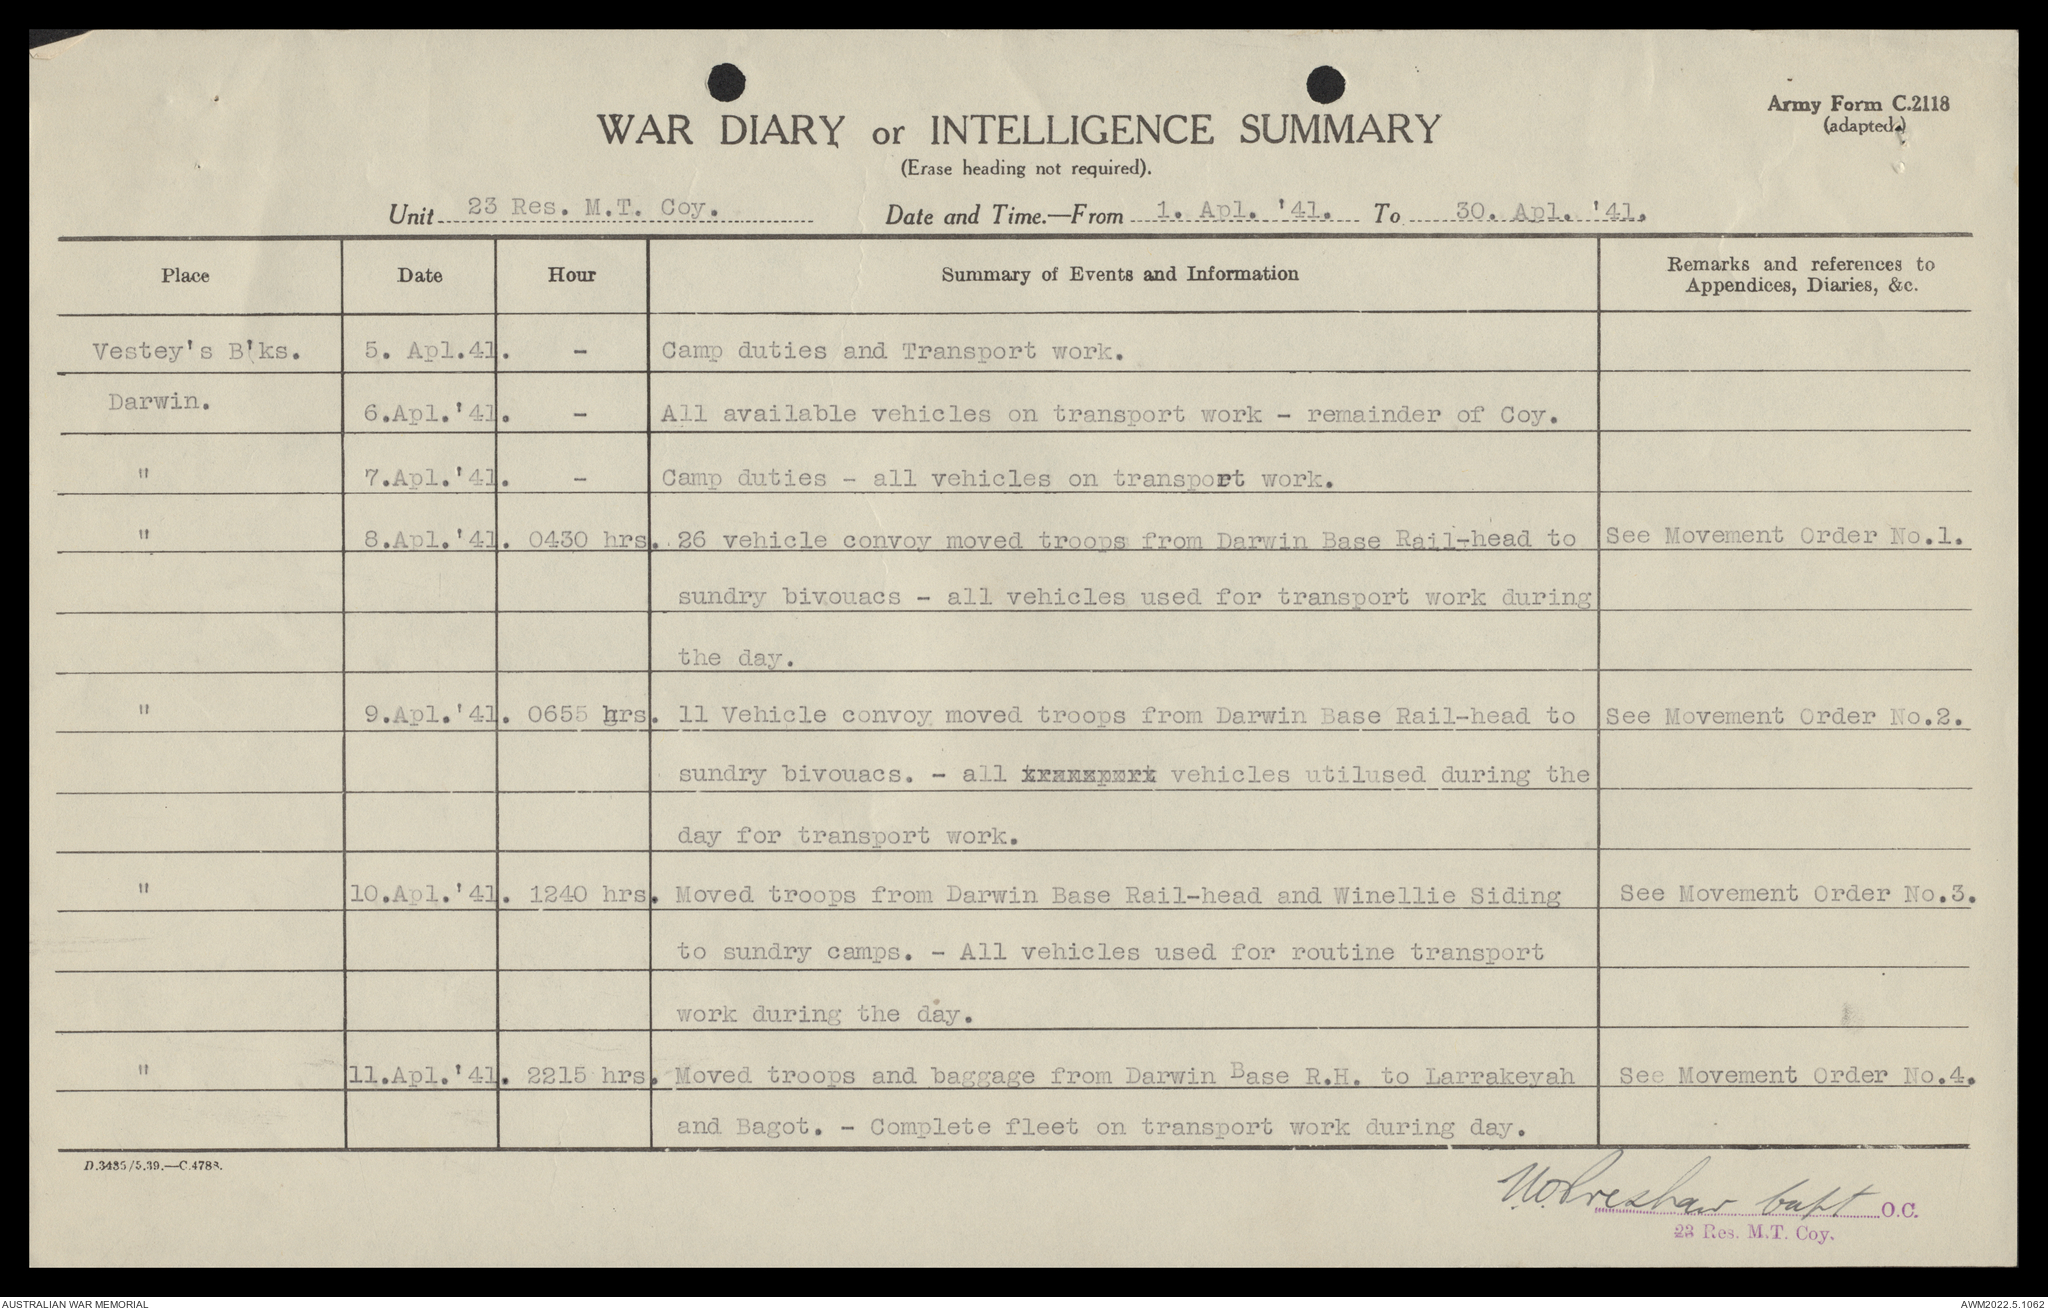 Army Form C.2118
(adapted.)
WAR DIARY or INTELLIGENCE SUMMARY
(Erase heading not required).
Unit 23 Res. M.T. Coy. Date and Time.—From 1. Apl. '41. To 30. Apl. '41.
Place Date Hour Summary of Events and Information Remarks and references to
Appendices, Diaries, &c.
Vestey's B'ks. 5. Apl.41. - Camp duties and Transport work.
Darwin. 6.Apl.'41. - All available vehicles on transport work - remainder of Coy.
" 7.Apl.'41. - Camp duties - all vehicles on transport work.
" 8.Apl.'41. 0430 hrs. 26 vehicle convoy moved troops from Darwin Base Rail-head to See Movement Order No.1.
sundry bivouacs - all vehicles used for transport work during
the day.
" 9.Apl.'41. 0655 hrs. 11 Vehicle convoy moved troops from Darwin Base Rail-head to See Movement Order No.2.
sundry bivouacs. - all transport vehicles utilused during the
day for transport work.
" 10.Apl.'41. 1240 hrs. Moved troops from Darwin Base Rail-head and Winellie Siding See Movement Order No.3.
to sundry camps. - All vehicles used for routine transport
work during the day.
" 11.Apl.'41. 2215 hrs. Moved troops and baggage from Darwin Base R.H. to Larrakeyah See Movement Order No.4.
and Bagot. - Complete fleet on transport work during day.
D.3485/5.39.—C.4788.
Capt O.C.
23 Res. M.T. Coy.
AUSTRALIAN WAR MEMORIAL AWM2022.5.1062